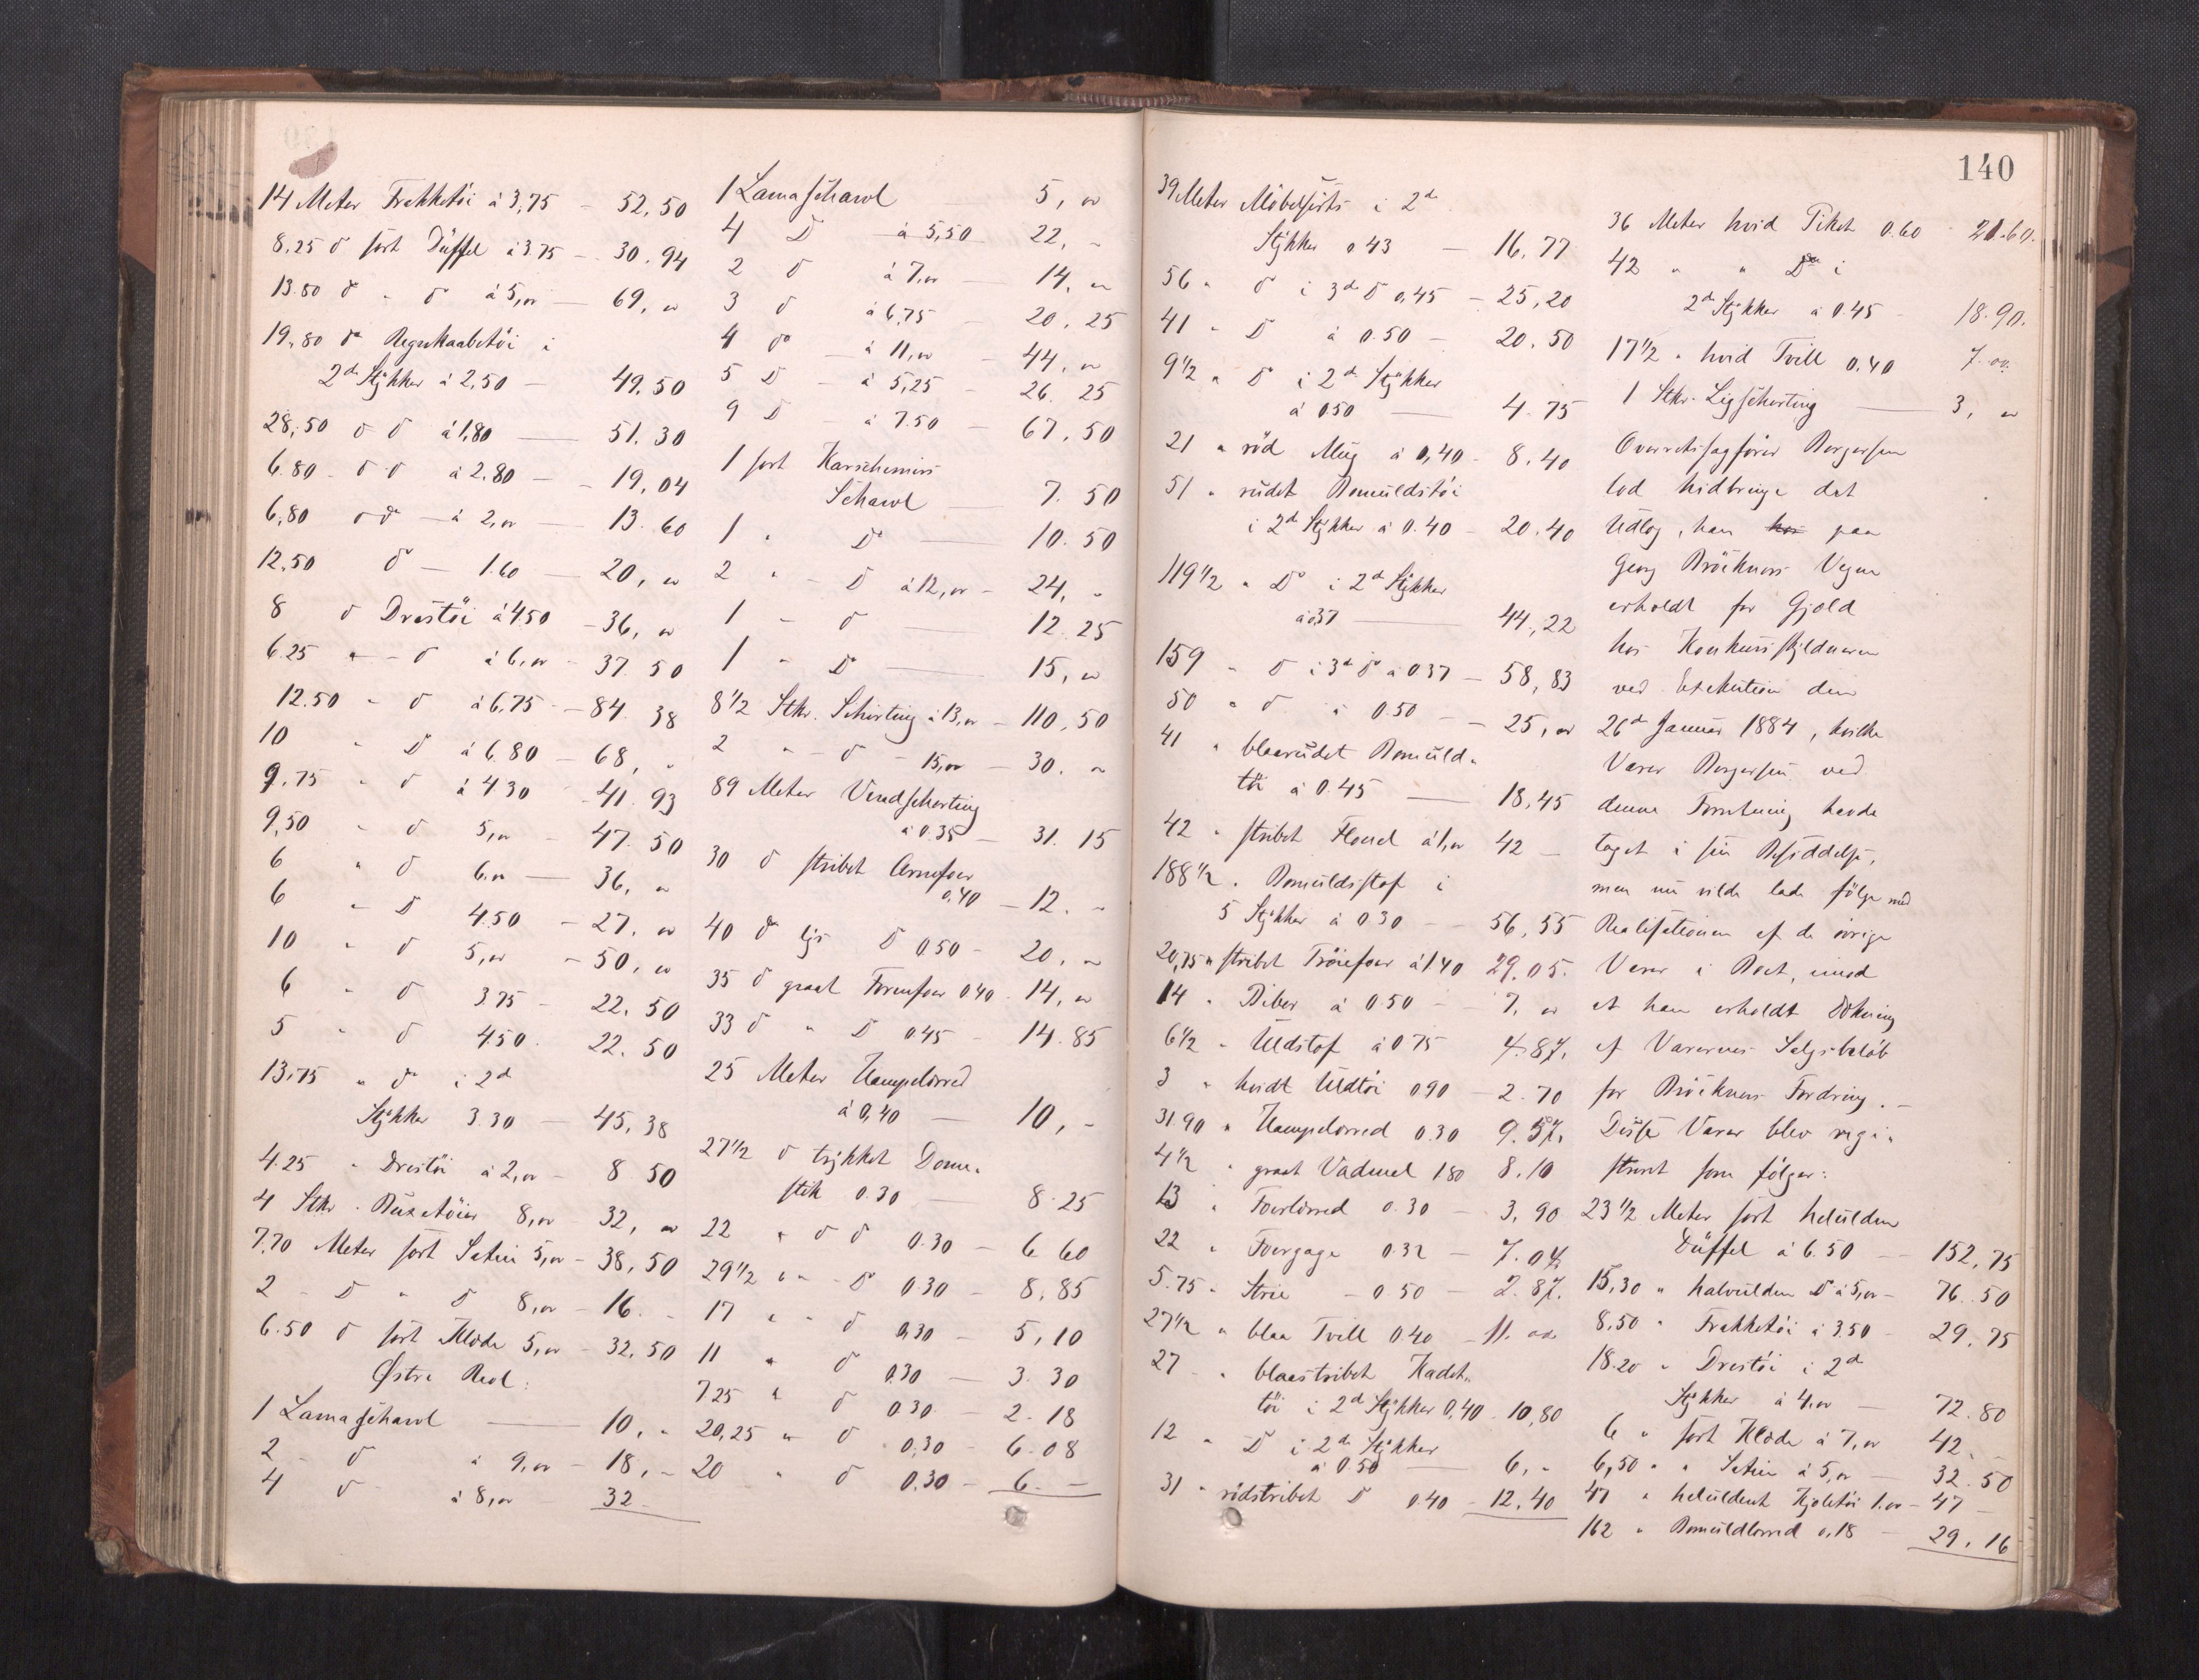 14 Meter Frakketøi à 3,75 — 52,50
8,25 do sort Düffel à 3.75 — 30.94
13.80 do " do à 5,00 — 69, 00
19,80 do Regnkaabetøi i
2de Stÿkker à 2,50 — 49.50
28,50 do do à 1,80 — 51.30
6.80 do do à 2.80 — 19,04
6,80 do do — à 2,00 — 13.60
12,50 do — 1.60 — 20, 00
8 do Drestöi à 4.50 — 36, 00
6.25 " — do à 6,00 — 37.50
12.50 " do à 6,75 — 84.38
10 " Do à 6.80 — 68, "
9.75 " do à 4 30 41.93
9,50 " do 5,00 — 47.50
6 " do 6.00 — 36, 00
6 " Do 4.50 — 27, 00
10 " do 5,00 — 50, 00
6 " do 3.75 — 22.50
5 " do 4.50 22.50
13,75 " do i 2de
Stÿkker 3.30 — 45,38
4.25 " Drestöi à 2,00 — 8.50
4 Stkr. Buxetöier 8,00 32, 00
7,70 Meter sort Satin 5,00 — 38,50
2 " Do " Do 8,00 — 16. -
6.50 do sort Klæde 5,00 — 32,50
Østre Reol:
1 Lamaschawl — 10, "
2 do à 9,00 — 18, -
4 do à 8,00 32 -
1 Lamaschawl 5, 00
4 Do — à 5,50 22, -
2 do à 7,00 — 14, 00
3 do à 6,75 20.25
4 do — à 11,00 — 44, 00
5 Do — à 5,25 26.25
9 Do — à 7.50 — 67,50
1 sort Karschemirs
Schawl — 7.50
1 " Do — 10.50
2 " — Do à 12,00 — 24, -
1 — do — 12.25
1 " Do — 15, 00
8 1/2 Stkr. Schirting à 13,00 — 110,50
2 " — do — 15,00 — 30. 00
89 Meter Vendscherting
à 0.35 — 31.15
30 do stribet Ærmefoer
0,40 — 12. -
40 do lys Do 0.50 — 20, 00
35 do graat Formfoer 0.40 — 14, 00
33 do " Do 0.45 — 14.85
25 Meter Hampelærred
à 0,40 — 10, -
27 1/2 do trÿkket Dome-
stik 0.30 — 8.25
22 " do do 0.30 — 6 60
29 1/2 " — Do 0.30 — 8,85
17 " " do 0,30 — 5,10
11 " do 0.30 — 3.30
7.25 " do 0.30 — 2.18
20,25 " do 0,30 — 6.08
20 " do 0.30 — 6. —
39 Meter Möbelsirts i 2de
Stÿkker 0.43 — 16.77
56 " do i 3de Do 0,45 — 25,20
41 " Do à 0.50 — 20.50
9 1/2 " Do i 2de Stÿkker
à 0.50 — 4.75
21 " röd Meÿ à 0,40 8.40
51 " rüdet Bomüldstöi
i 2de Stÿkker à 0.40 — 20.40
119 1/2 " Do i 2de Stÿkker
à 0.37 — 44,22
159 " do i 3de do à 0.37 — 58,83
50 " do à 0.50 — 25, 00
41 " blaarüdet Bomüld-
töi à 0.45 — 18,45
42 " stribet Flonel à 1,00 42 —
188 1/2 " Bomüldsstof i
5 Stÿkker à 0.30 — 56,55
20,75 " stribet Tröiefoer à 1.40 29.05.
14 " Biber à 0.50 — 7, 00
6 1/2 " Üldstof à 0.75 4.87.
3 " hvidt Üldtöi 0.90 — 2.70
31.90 " Hampelærred 0.30 9.57.
4 1/2 " graat Vadmel 1.80 8.10
13 " Foerlærred 0.30 — 3,90
22 " Foergage 0.32 — 7.04
5.75 " Strie — 0.50 — 2.87.
27 1/2 " blaa Tvill 0.40 — 11.00
27 " blaastribet Kadet-
töi i 2de Stÿkker 0,40 10,80
12 " Do i 2de Stÿkker
à 0.50 — 6, -
31 " rödstribet Do 0.40 — 12.40
140
36 Meter hvid Piket 0.60 21.60.
42 " " Do i
2de Stÿkker à 0.45 18.90.
17 1/2 " hvid Tvill 0.40 7.00.
1 Stkr. Ligscherting — 3, 00
Overretssagförer Borgersen
lod hidbringe det
Udlæg, han hos paa
Georg Bröckners Vegne
erholdt for Gjæld
hos Konkursskÿldneren
ved Exekution den
26de Januar 1884, hvilke
Varer Borgersen ved
denne Forretning havde
taget i sin Besiddelse,
men nu vilde lade fölge med
Realisationen af de övrige
Varer i Boet, imod
at han erholdt Dækning
af Varernes Salgsbelöb
for Bröckners Fordring. —
Disse Varer blev regi-
streret som fölger:
23 1/2 Meter sort helülden
Düffel à 6.50 — 152,75
15,30 " halvülden Do à 5,00 — 76.50
8.50 " Frakketöi à 3.50 29,75
18.20 " Drestöi i 2de
Stÿkker à 4,00 — 72.80
6 " sort Klæde à 7,00 42 -
6,50 " " Satin à 5,00 — 32.50
47 " helüldent Kjoletöi 1.00 — 47 —
162 " Bomüldlærred 0.18 29.16